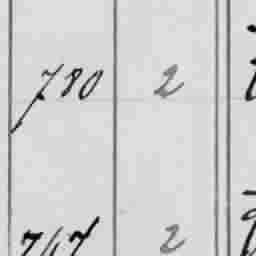 780 2
767 2